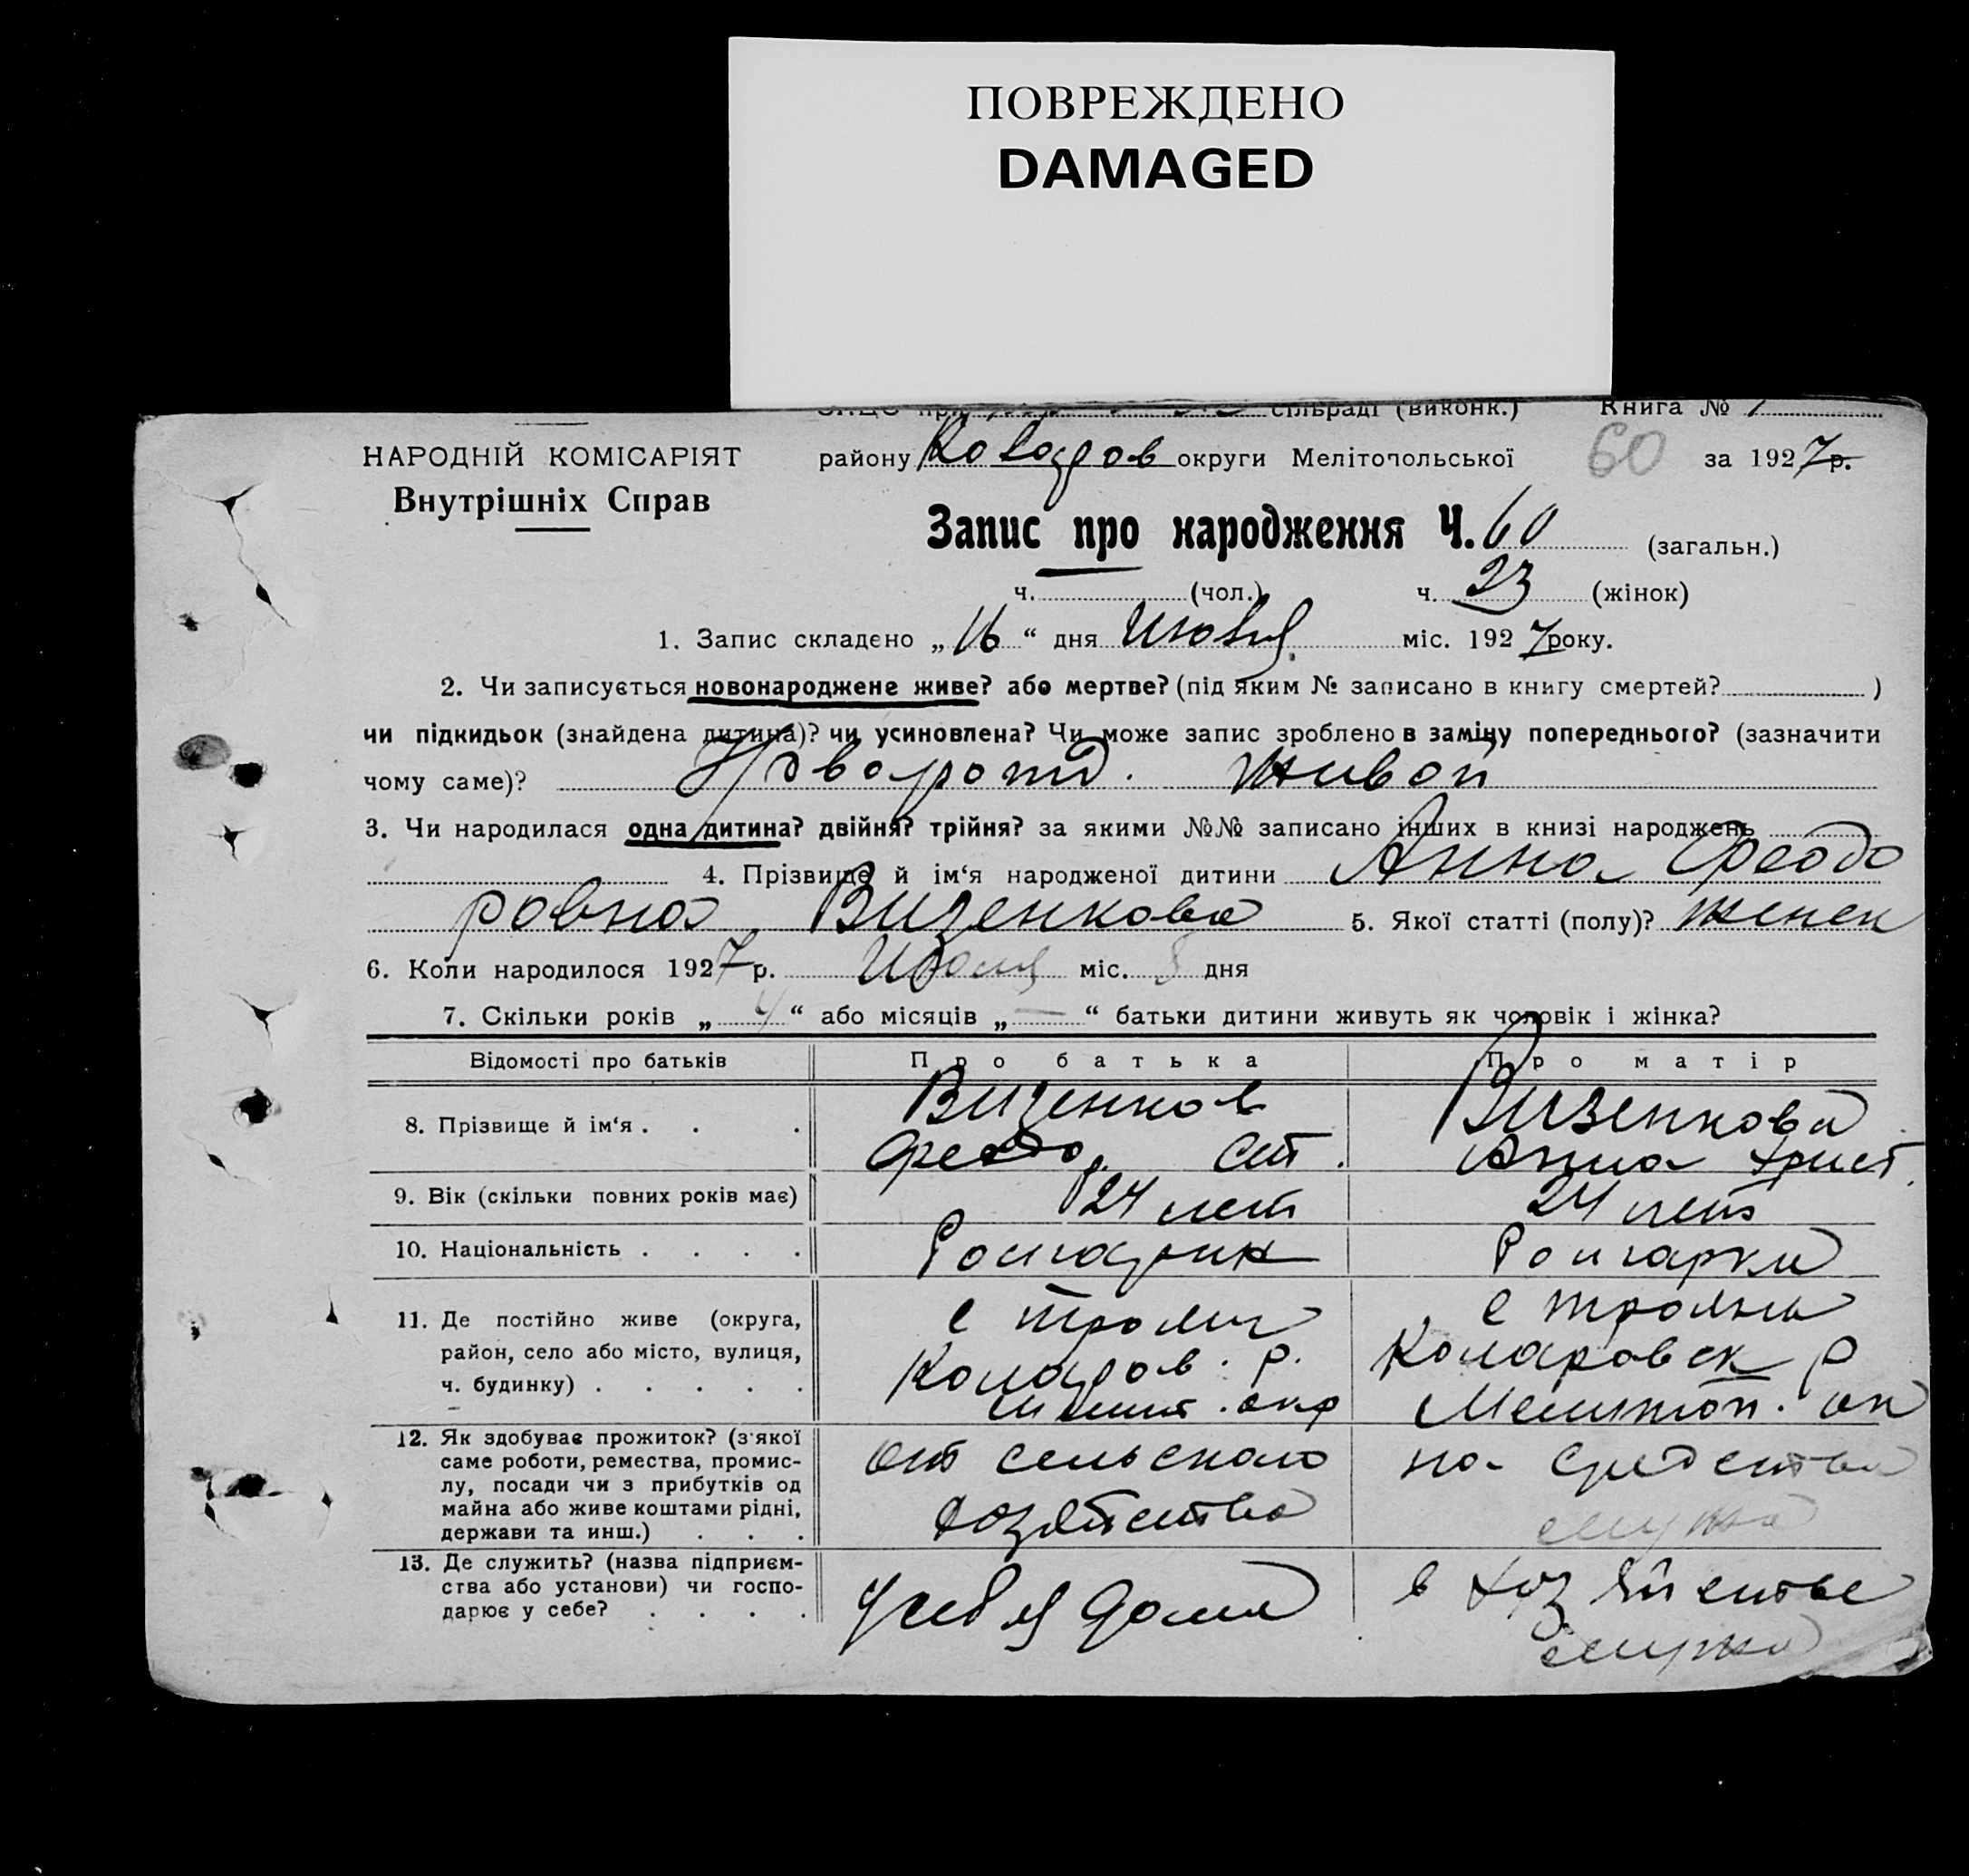 ПОВРЕЖДЕНО
DAMAGED
сільраді (виконк.) Книга № 1
НАРОДНІЙ КОМІСАРІЯТ
Внутрішніх Справ
району Коларов округи Мелітопольської 60 за 1927 р.
Запис про народження Ч. 60 (загальн.)
ч. (чол.) ч. 23 (жінок)
1. Запис складено „16“ дня Июля міс. 1927 року.
2. Чи записується новонароджене живе? або мертве? (під яким № записано в книгу смертей? )
чи підкидьок (знайдена дитина)? чи усиновлена? Чи може запис зроблено в заміну попереднього? (зазначити
чому саме)? Новорожд. живой
3. Чи народилася одна дитина? двійня? трійня? за якими №№ записано інших в книзі народжень
4. Прізвище й ім‘я народженої дитини Анна Феодо
ровна Визенкова 5. Якої статті (полу)? женск
6. Коли народилося 1927 р. Июля міс. 8 дня
7. Скільки років „4“ або місяців „—“ батьки дитини живуть як чоловік і жінка?
Відомості про батьків Про батька Про матір
8. Прізвище й ім‘я . . . Визенков Визенкова
Феодор Ст. Анна Христ.
9. Вік (скільки повних років має) 24 лет 24 лет
10. Національність . . . . Болгарин Болгарка
11. Де постійно живе (округа, район, село або місто, вулиця, ч. будинку) . . . . .
с Трояны
Коларов. р.
Мелит. окр
с Трояны
Коларовск р
Мелитоп. ок
12. Як здобуває прожиток? (з якої
саме роботи, ремества, промис-
лу, посади чи з прибутків од
майна або живе коштами рідні,
держави та инш.) . . .
от сельского
хозяйства
на средства
мужа
13. Де служить? (назва підприєм-
ства або установи) чи госпо-
дарює у себе? . . . .
у себя дома
в хозяйстве
мужа